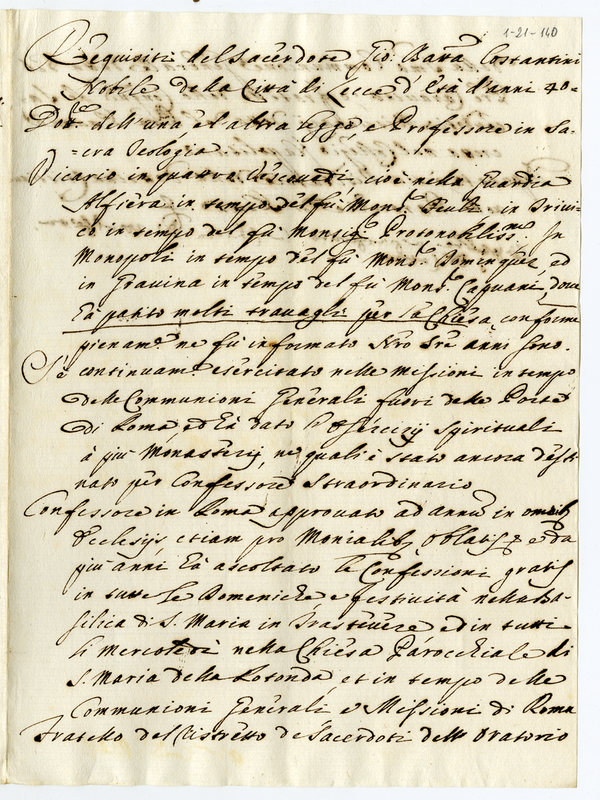 1-21-140
Requisiti del Sacerdote Gio: Batta Costantini
Nobile della Città di Lecce d'Età d'anni 40=
Dotre dell'una, e l'altra legge, e Professore in Sa=
=cra Teologia.
Vicario in quattro Vescovadi, cioè nella Guardia
Alfiera in tempo del fù Monsr in Trivi=
co in tempo del fù Monsigr In
Monopoli in tempo del fù Monsr Dominguez, ed
in Gravina in tempo del fù Monsr Capuani, dove
hà patito molti travagli per la Chiesa, conforme
pienamte ne fù informato Nro Sre anni sono.
S'è continuamte esercitato nelle missioni in tempo
delle Communioni Generali fuori delle Porte
di Roma, ed hà dato l'Esercizij Spirituali
à più Monasterij, ne quali è stato ancora desti
nato per Confessore straordinario
Confessore in Roma approvato ad annũ in omnib9
Ecclesijs etiam pro Monialib9, Oblatis & e da
più anni hà ascoltato le Confessioni gratis
in tutte le Domeniche, e festività nella Ba=
silica di S. Maria in Trastevere ed in tutti
li mercoledì nella Chiesa Parocchiale di
S. Maria della Rotonda, et in tempo delle
Communioni Generali e Missioni di Roma
Fratello del Ristretto de Sacerdoti dell'Oratorio